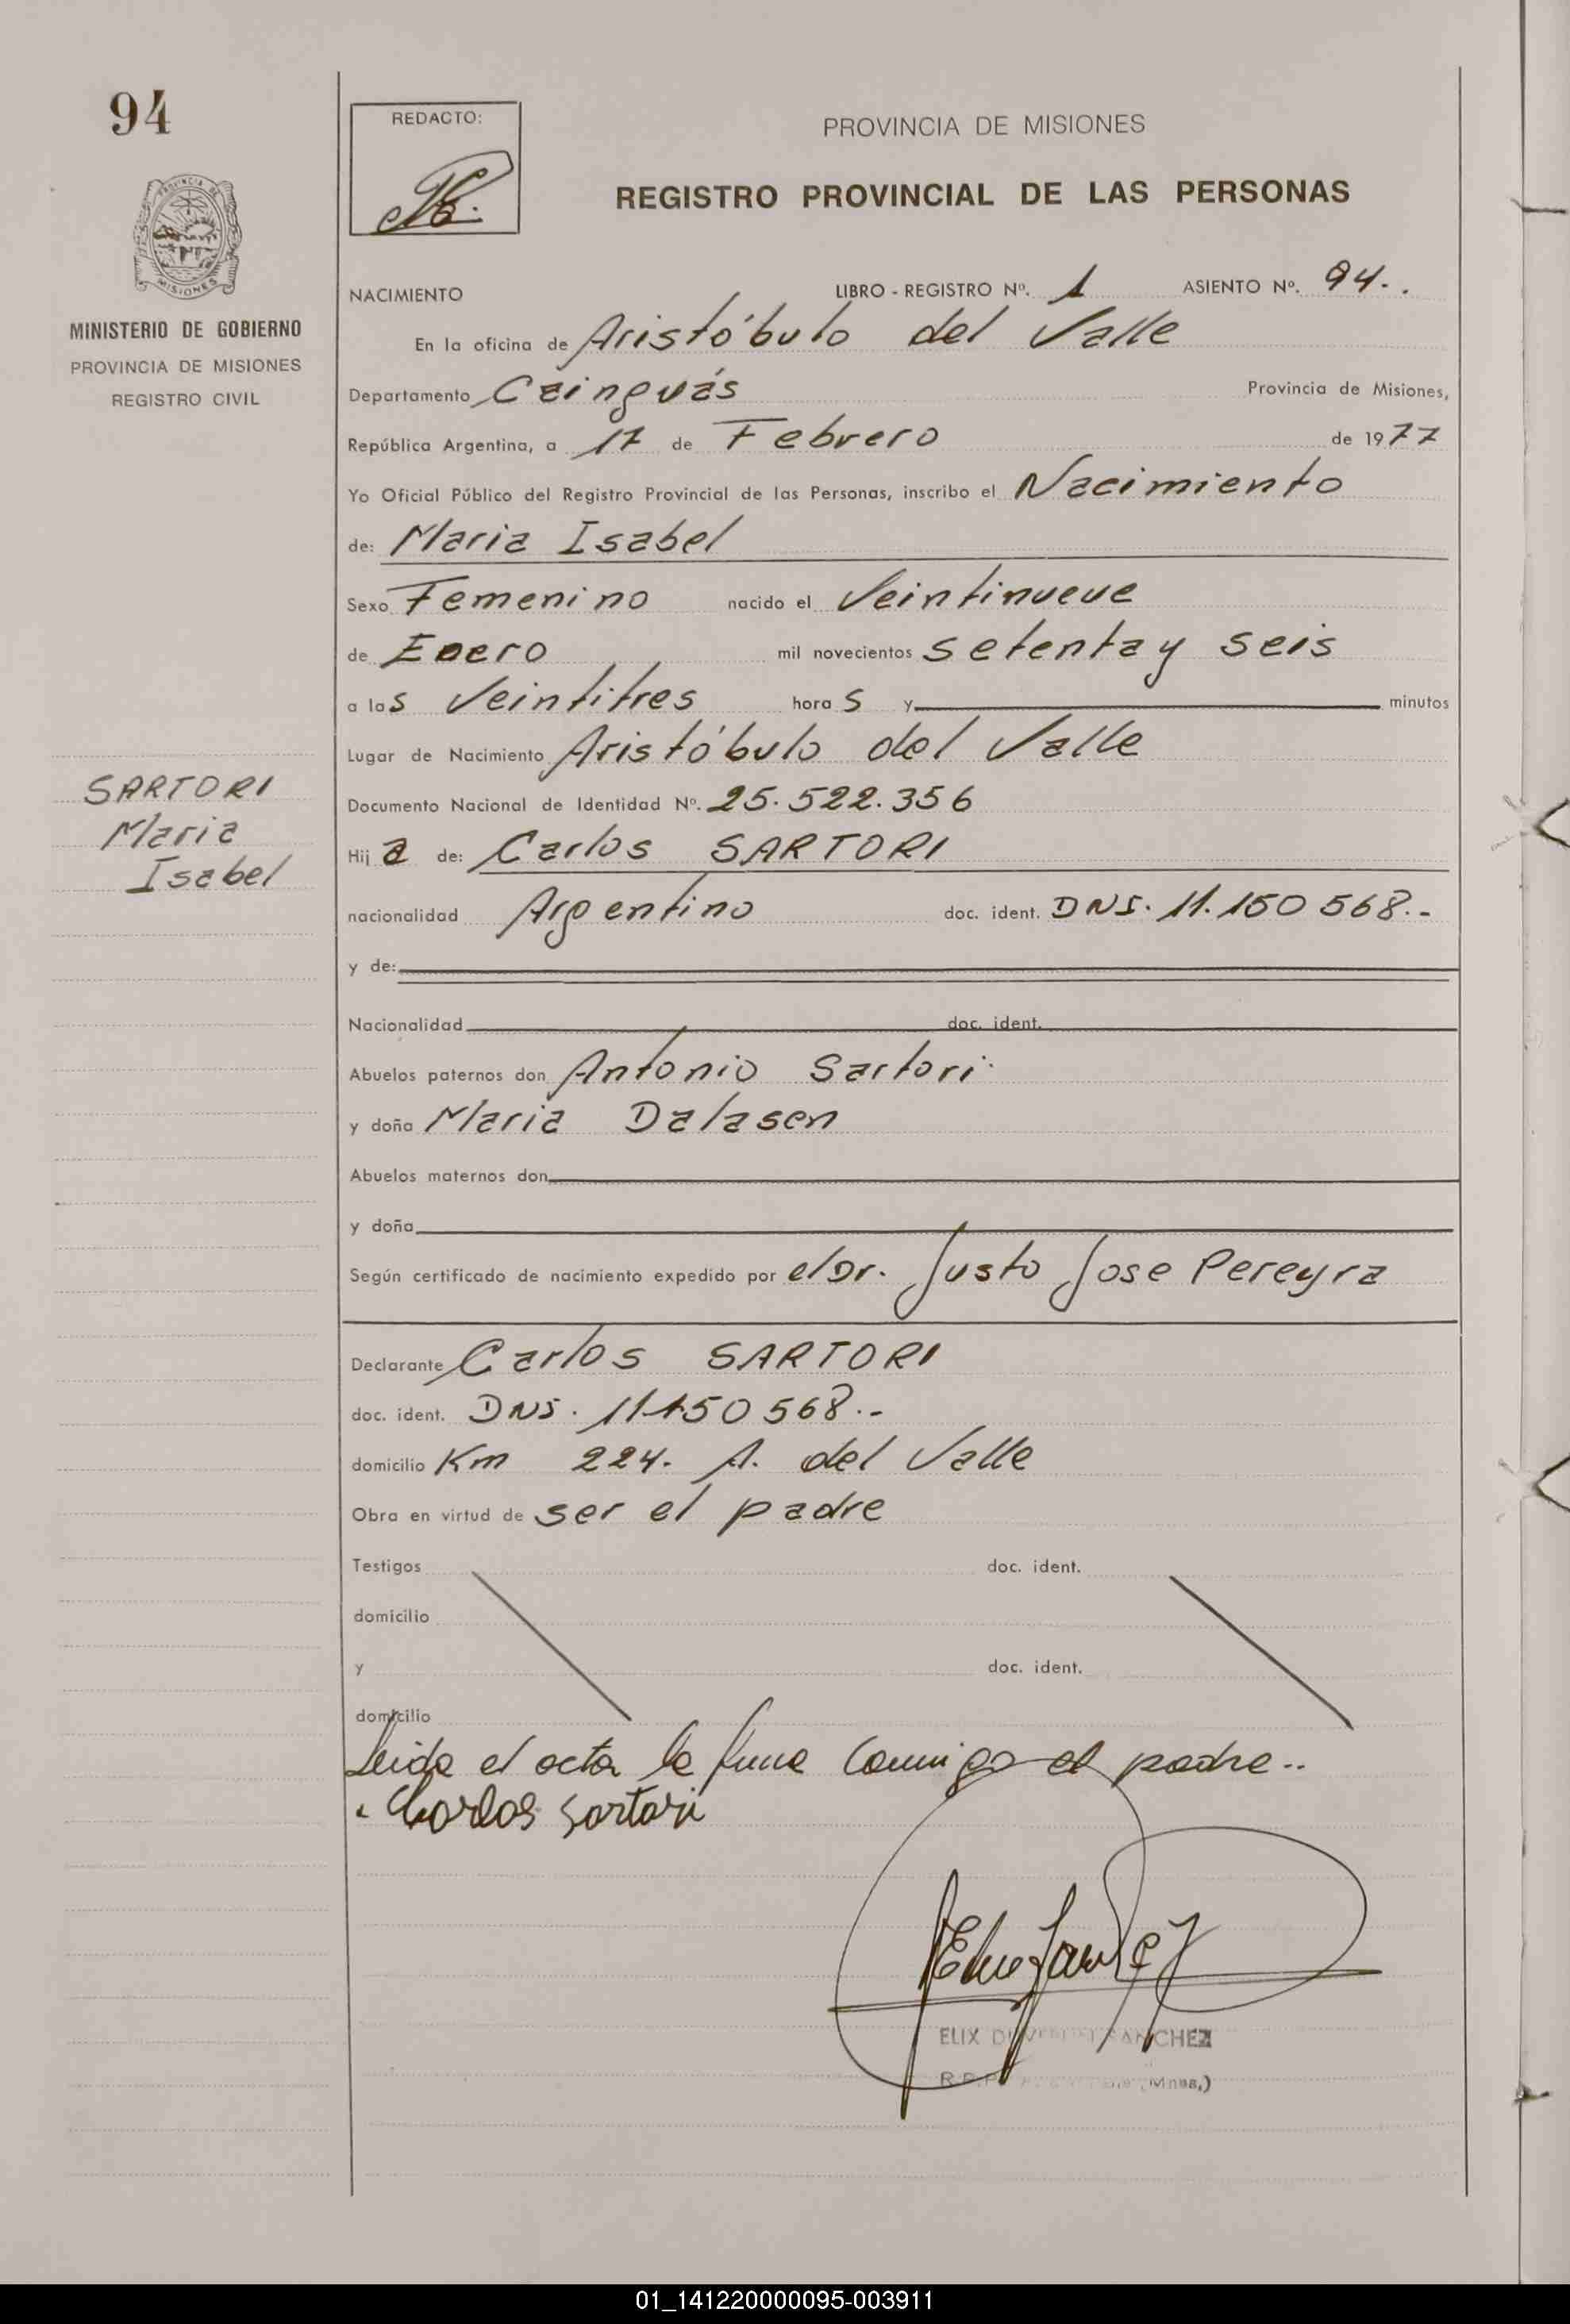 94
REDACTO:
PROVINCIA DE MISIONES
REGISTRO PROVINCIAL DE LAS PERSONAS
MISIONES
MINISTERIO DE GOBIERNO
PROVINCIA DE MISIONES
REGISTRO CIVIL
NACIMIENTO LIBRO - REGISTRO Nº. 1 ASIENTO Nº. 94..
En la oficina de Aristóbulo del Valle
Departamento Cainguás Provincia de Misiones,
República Argentina, a 17 de Febrero de 1977
Yo Oficial Público del Registro Provincial de las Personas, inscribo el Nacimiento
de: Maria Isabel
Sexo Femenino nacido el Veintinueve
de Enero mil novecientos setenta y seis
a las Veintitres horas y minutos
Lugar de Nacimiento Aristóbulo del Valle
SARTORI
Maria
Isabel
Documento Nacional de Identidad Nº. 25.522.356
Hija de: Carlos SARTORI
nacionalidad Argentino doc. ident. DNI. 11.150568.-
y de:
Nacionalidad doc. ident.
Abuelos paternos don Antonio Sartori
y doña Maria Dalasen
Abuelos maternos don
y doña
Según certificado de nacimiento expedido por el Dr. Justo Jose Pereyra
Declarante Carlos SARTORI
doc. ident. DNI. 11.150568.-
domicilio Km 224. A. del Valle
Obra en virtud de ser el padre
Testigos doc. ident.
domicilio
y doc. ident.
domicilio
Leida el acta la firma conmigo el padre..
Carlos Sartori
ELIX SANCHEZ
01_141220000095-003911